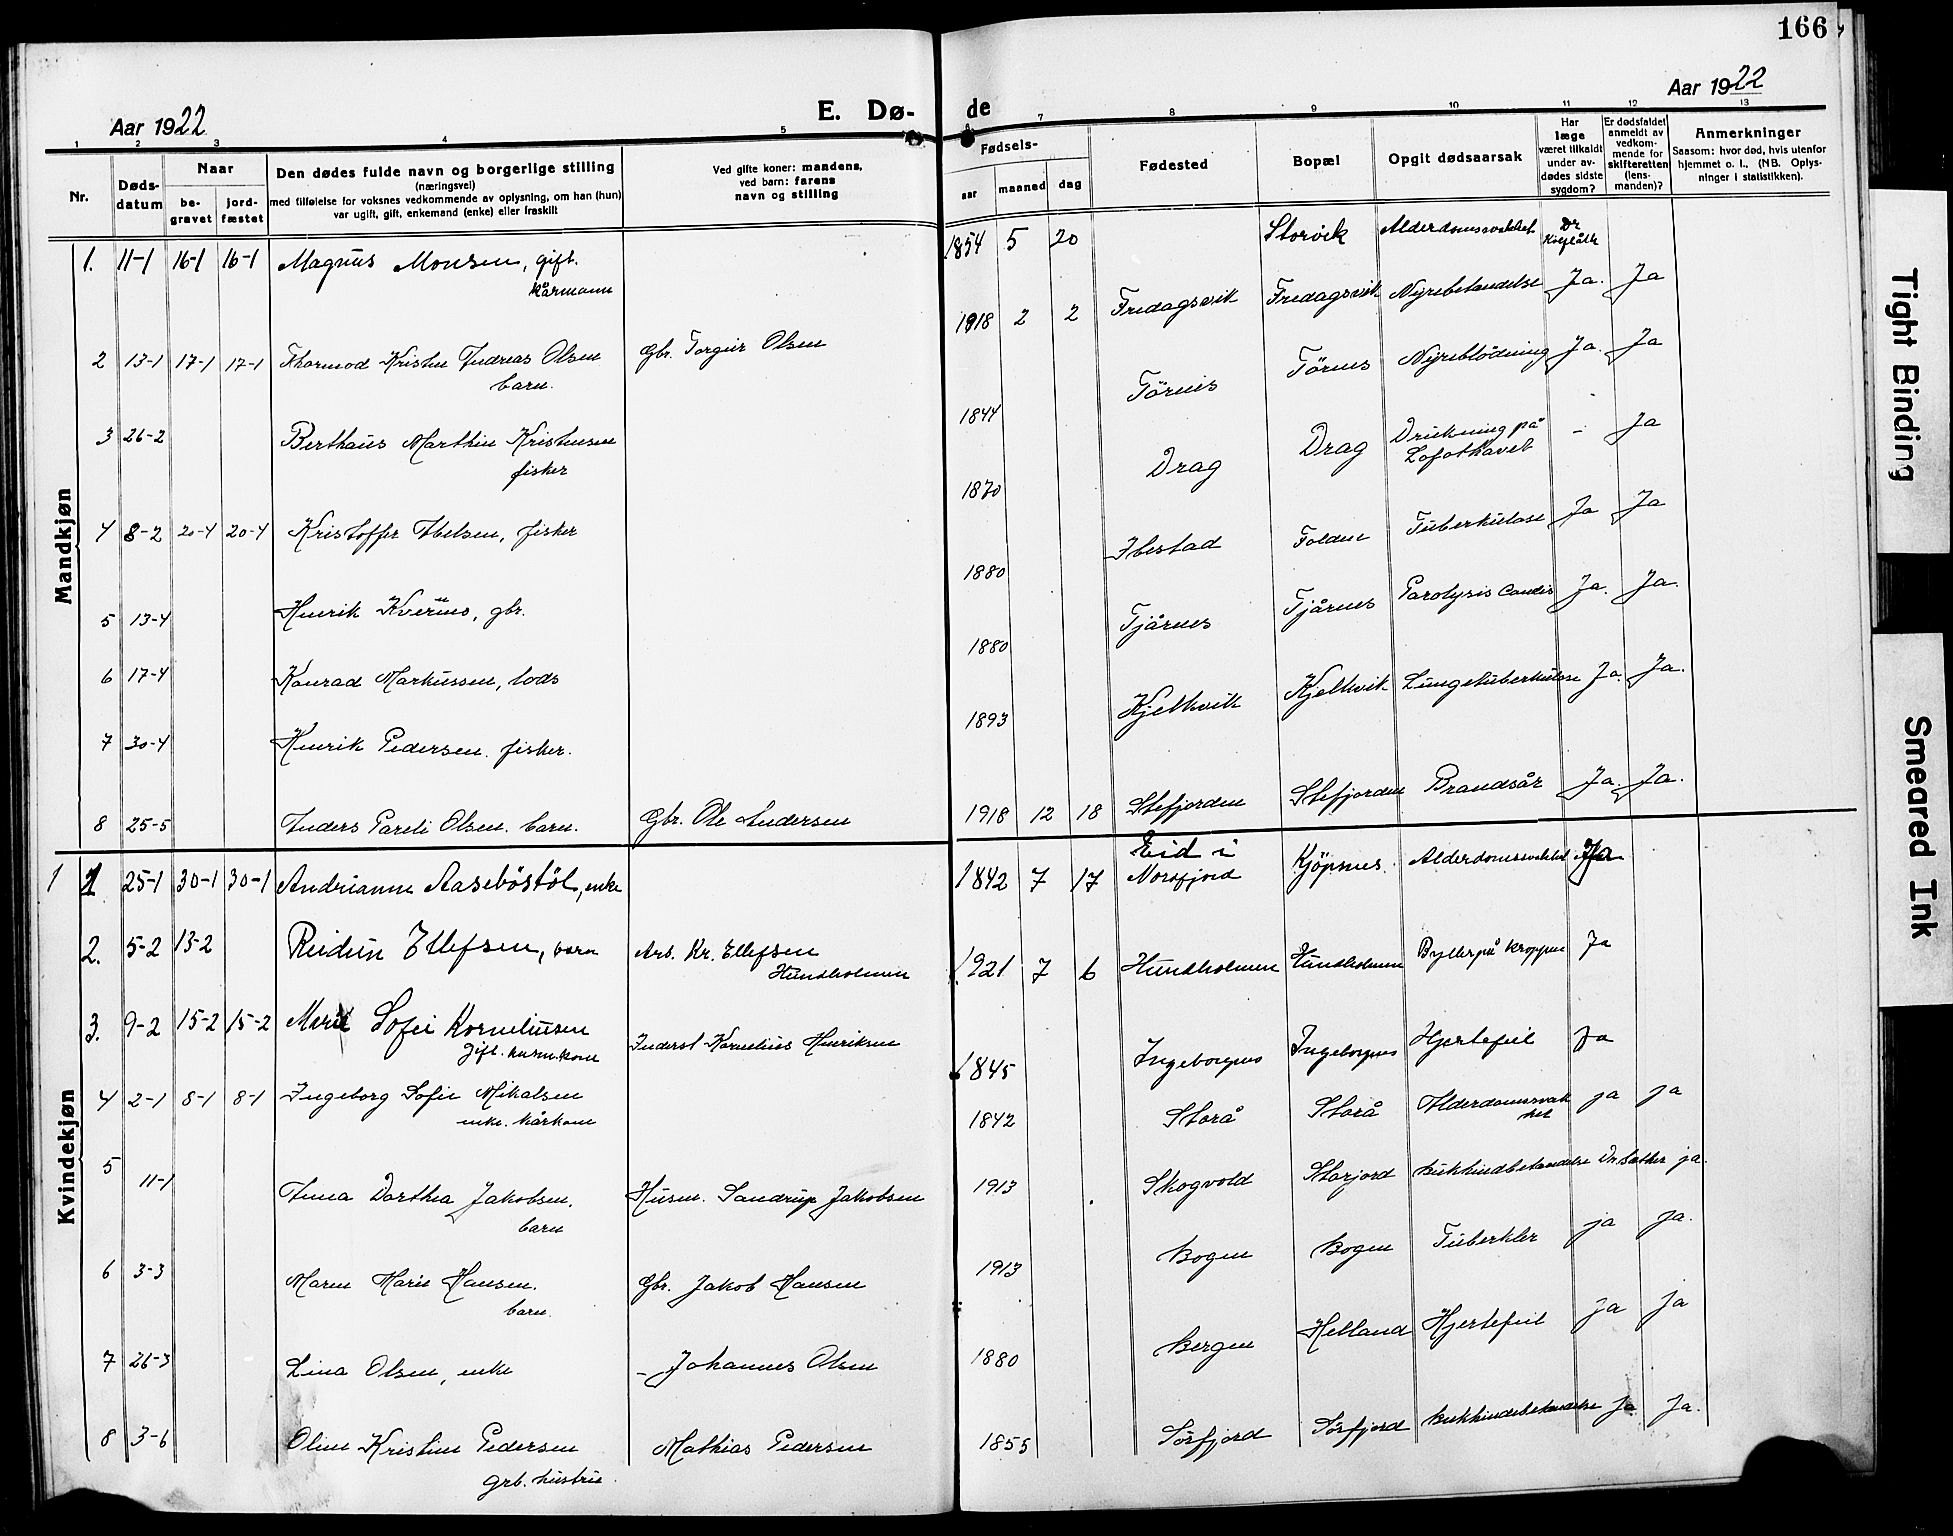 166
Aar 1922
E. Dø-
de
Aar 1922
1 2 3 4 5
7 8 9 10 11 12 13
Nr.
Døds-
datum
Naar
be-
gravet
jord-
fæstet
Den dødes fulde navn og borgerlige stilling
(næringsvei)
med tilføielse for voksnes vedkommende av oplysning, om han (hun)
var ugift, gift, enkemand (enke) eller fraskilt
Ved gifte koner: mandens,
ved barn: farens
navn og stilling
Fødsels-
aar maaned dag
Fødested
Bopæl
Opgit dødsaarsak
Har
læge
været tilkaldt
under av-
dødes sidste
sygdom?
Er dødsfaldet
anmeldt av
vedkom-
mende for
skifteretten
(lens-
manden)?
Anmerkninger
Saasom: hvor død, hvis utenfor
hjemmet o. l., (NB. Oplys-
ninger i statistikken).
Mandkjøn
1. 11-1 16-1 16-1 Magnus Monsen, gift.
kårmann
1854 5 20 Storvik Alderdomssvakhet Dr
2 13-1 17-1 17-1 Thormod Kristen Andreas Olsen
barn.
Gbr. Torgeir Olsen
1918 2 2 Fredagsvik Fredagsvik Nyrebetendelse Ja. Ja
3 26-2 Berthaus Marthin Kristensen
fisker
1844 Törnes Törnes Nyreblödning Ja. Ja
4 8-2 20-4 20-4 Kristoffer Abelsen, fisker
1870 Drag Drag Drukning på
Lofothavet - Ja
5 13-4 Henrik Kverûs, gbr.
1880 Ibestad Folden Tuberkulose Ja Ja
6 17-4 Konrad Markussen, lods
1880 Tjårnes Tjårnes Paralysis Ja. Ja.
7 30-4 Henrik Pedersen. fisker.
1893 Kjelkvik Kjelkvik Lungetuberkulose Ja. Ja.
8 25-5 Anders Pareli Olsen. barn. Gbr. Ole Andersen
1918 12 18 Stefjorden Stefjorden Brandsår Ja. Ja.
Kvindekjøn
1 1 25-1 30-1 30-1 Andrianne Aaseböstöl, enke
1842 7 17 Eid i
Norfjord Kjöpsnes. Alderdomssvakhet Ja
2. 5-2 13-2 Reidun Ellefsen, barn Arb. Kr. Ellefsen
Hundholmen
1921 7 6 Hundholmen Hundholmen Byller på kroppen Ja
3. 9-2 15-2 15-2 Marie Sofie Korneliusen
gift. husm.kone
Inderst Kornelius Henriksen
1845 Ingeborgnes Ingeborgnes Hjertefeil Ja
4 2-1 8-1 8-1 Ingeborg Sofie Mikalsen
enke. kårkone
1842 Storå Storå Alderdomssvak
het ja ja
5 11-1 Anna Dorthea Jakobsen.
barn
Husm. Sandrup Jakobsen
1913 Skogvold Storjord Bukhindbetendelse Dr. Sæther ja.
6 3-3 Maren Marie Hansen.
barn.
Gbr. Jakob Hansen
1913 Bogen Bogen Tuberkler ja ja.
7 26-3 Lina Olsen, enke - Johannes Olsen
1880 Bergen Helland Hjertefeil Ja Ja
8 3-6 Oline Kristine Pedersen
grb. hustru.
Mathias Pedersen
1855 Sörfjord Sörfjord Bukhindebetendelse Ja Ja.
Tight Binding
Smeared Ink